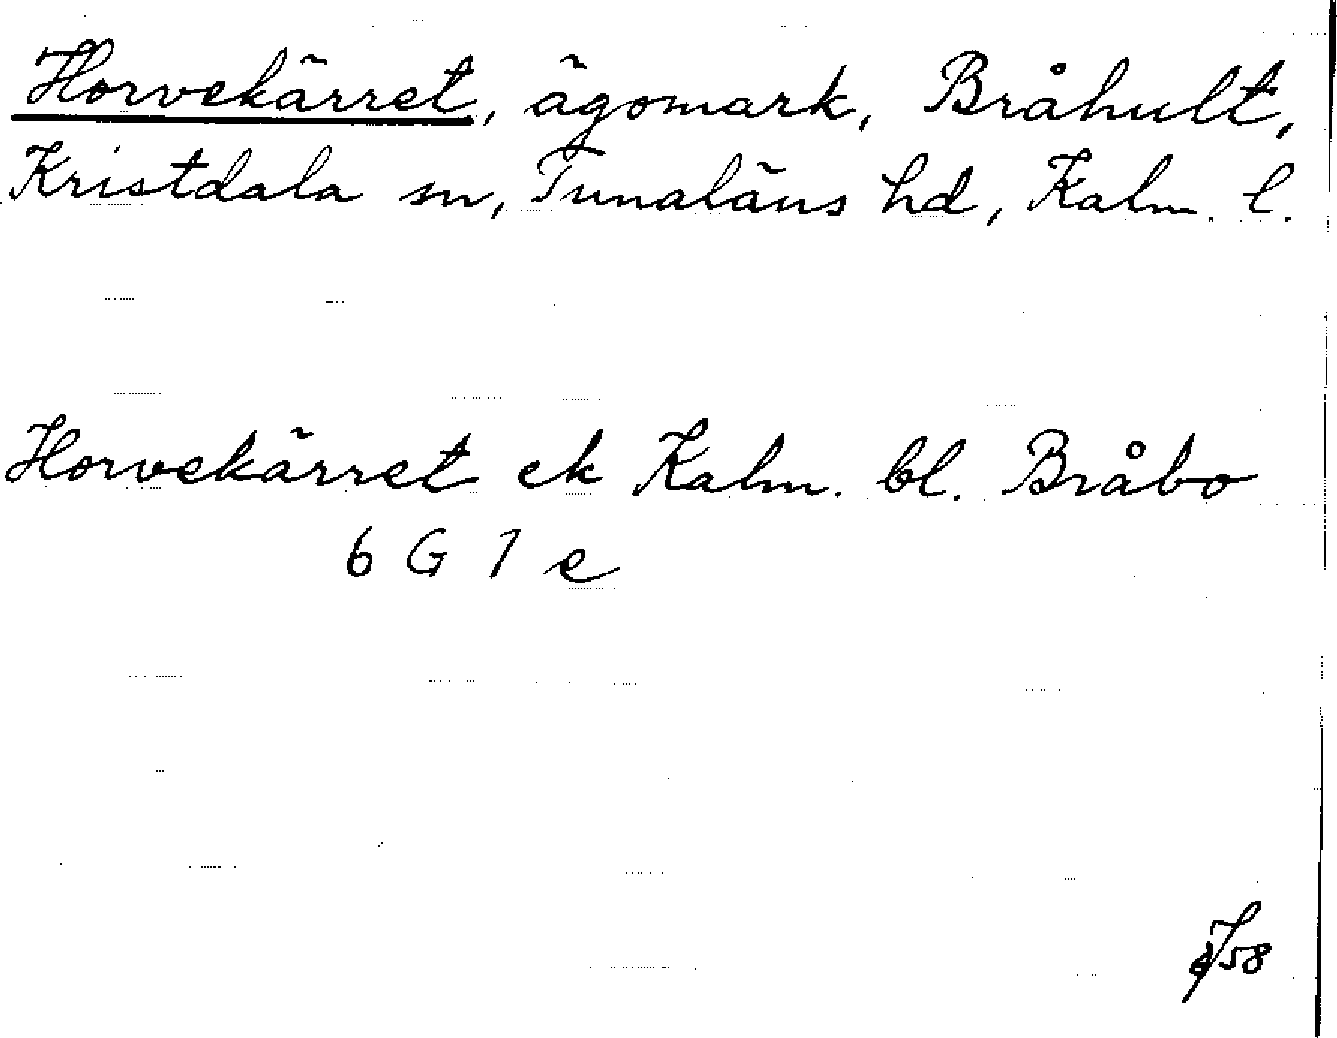 Horvekärret, ägomark, Bråhult,
Kristdala sn, Tunaläns hd, Kalm. l.
Horvekärret ek Kalm. bl. Bråbo
6 G 1 e
58